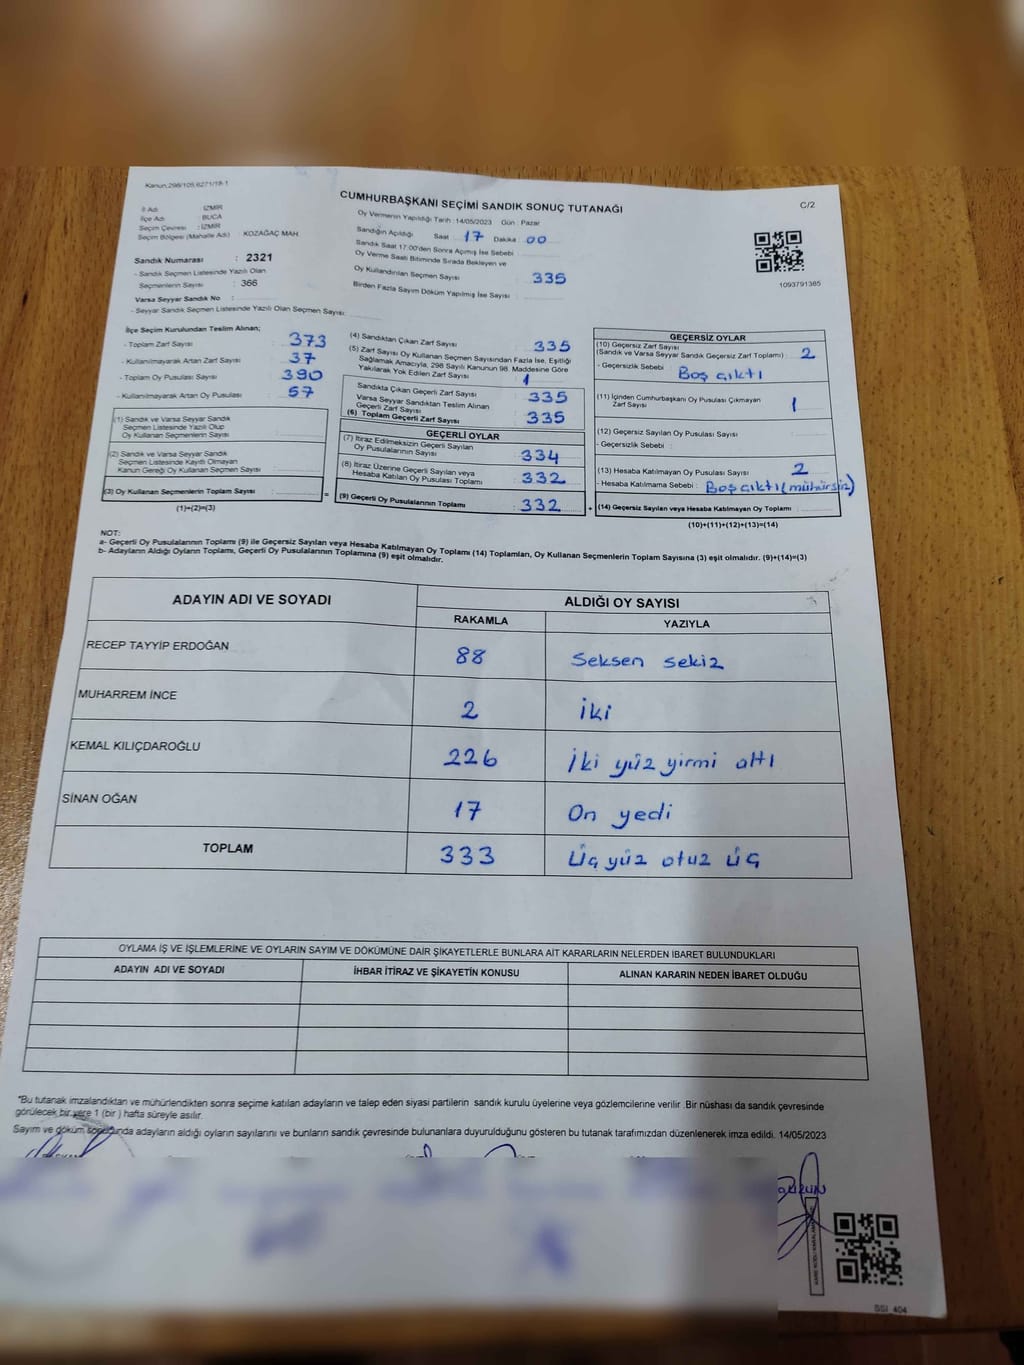 Kanun,298/105,6271/18-1
CUMHURBAŞKANI SEÇİMİ SANDIK SONUÇ TUTANAĞI
C/2
İl Adı : İZMİR
İlçe Adı : BUCA
Seçim Çevresi : İZMİR
Seçim Bölgesi (Mahalle Adı) KOZAĞAÇ MAH.
Sandık Numarası : 2321
- Sandık Seçmen Listesinde Yazılı Olan
Seçmenlerin Sayısı : 366
Varsa Seyyar Sandık No :
- Seyyar Sandık Seçmen Listesinde Yazılı Olan Seçmen Sayısı:
Oy Vermenin Yapıldığı Tarih : 14/05/2023 Gün : Pazar
Sandığın Açıldığı Saat 17 Dakika : 00
Sandık Saat 17:00'den Sonra Açmış İse Sebebi :
Oy Verme Saati Bitiminde Sırada Bekleyen ve
Oy Kullandırılan Seçmen Sayısı : 335
Birden Fazla Sayım Döküm Yapılmış İse Sayısı :
1093791385
İlçe Seçim Kurulundan Teslim Alınan;
- Toplam Zarf Sayısı : 373
- Kullanılmayarak Artan Zarf Sayısı : 37
- Toplam Oy Pusulası Sayısı : 390
- Kullanılmayarak Artan Oy Pusulası : 57
(1) Sandık ve Varsa Seyyar Sandık
Seçmen Listesinde Yazılı Olup
Oy Kullanan Seçmenlerin Sayısı :
(2) Sandık ve Varsa Seyyar Sandık
Seçmen Listesinde Kayıtlı Olmayan
Kanun Gereği Oy Kullanan Seçmen Sayısı :
(3) Oy Kullanan Seçmenlerin Toplam Sayısı :
(1)+(2)=(3)
=
(4) Sandıktan Çıkan Zarf Sayısı : 335
(5) Zarf Sayısı Oy Kullanan Seçmen Sayısından Fazla İse, Eşitliği
Sağlamak Amacıyla, 298 Sayılı Kanunun 98. Maddesine Göre
Yakılarak Yok Edilen Zarf Sayısı : 1
Sandıkta Çıkan Geçerli Zarf Sayısı : 335
Varsa Seyyar Sandıktan Teslim Alınan
Geçerli Zarf Sayısı :
(6) Toplam Geçerli Zarf Sayısı : 335
GEÇERLİ OYLAR
(7) İtiraz Edilmeksizin Geçerli Sayılan
Oy Pusulalarının Sayısı : 334
(8) İtiraz Üzerine Geçerli Sayılan veya
Hesaba Katılan Oy Pusulası Toplamı : 332
(9) Geçerli Oy Pusulalarının Toplamı : 332
+
GEÇERSİZ OYLAR
(10) Geçersiz Zarf Sayısı
(Sandık ve Varsa Seyyar Sandık Geçersiz Zarf Toplamı) : 2
- Geçersizlik Sebebi : Boş çıktı
(11) İçinden Cumhurbaşkanı Oy Pusulası Çıkmayan
Zarf Sayısı : 1
(12) Geçersiz Sayılan Oy Pusulası Sayısı :
- Geçersizlik Sebebi :
(13) Hesaba Katılmayan Oy Pusulası Sayısı : 2
- Hesaba Katılmama Sebebi : Boş çıktı (mühürsiz)
(14) Geçersiz Sayılan veya Hesaba Katılmayan Oy Toplamı :
(10)+(11)+(12)+(13)=(14)
NOT:
a- Geçerli Oy Pusulalarının Toplamı (9) ile Geçersiz Sayılan veya Hesaba Katılmayan Oy Toplamı (14) Toplamları, Oy Kullanan Seçmenlerin Toplam Sayısına (3) eşit olmalıdır. (9)+(14)=(3)
b- Adayların Aldığı Oyların Toplamı, Geçerli Oy Pusulalarının Toplamına (9) eşit olmalıdır.
ADAYIN ADI VE SOYADI
ALDIĞI OY SAYISI
RAKAMLA YAZIYLA
RECEP TAYYİP ERDOĞAN 88 Seksen sekiz
MUHARREM İNCE 2 İki
KEMAL KILIÇDAROĞLU 226 İki yüz yirmi altı
SİNAN OĞAN 17 On yedi
TOPLAM 333 Üç yüz otuz üç
OYLAMA İŞ VE İŞLEMLERİNE VE OYLARIN SAYIM VE DÖKÜMÜNE DAİR ŞİKAYETLERLE BUNLARA AİT KARARLARIN NELERDEN İBARET BULUNDUKLARI
ADAYIN ADI VE SOYADI İHBAR İTİRAZ VE ŞİKAYETİN KONUSU ALINAN KARARIN NEDEN İBARET OLDUĞU
"Bu tutanak imzalandıktan ve mühürlendikten sonra seçime katılan adayların ve talep eden siyasi partilerin sandık kurulu üyelerine veya gözlemcilerine verilir .Bir nüshası da sandık çevresinde
görülecek bir yere 1 (bir ) hafta süreyle asılır.
Sayım ve döküm sonucunda adayların aldığı oyların sayılarını ve bunların sandık çevresinde bulunanlara duyurulduğunu gösteren bu tutanak tarafımızdan düzenlenerek imza edildi. 14/05/2023
SSI_404